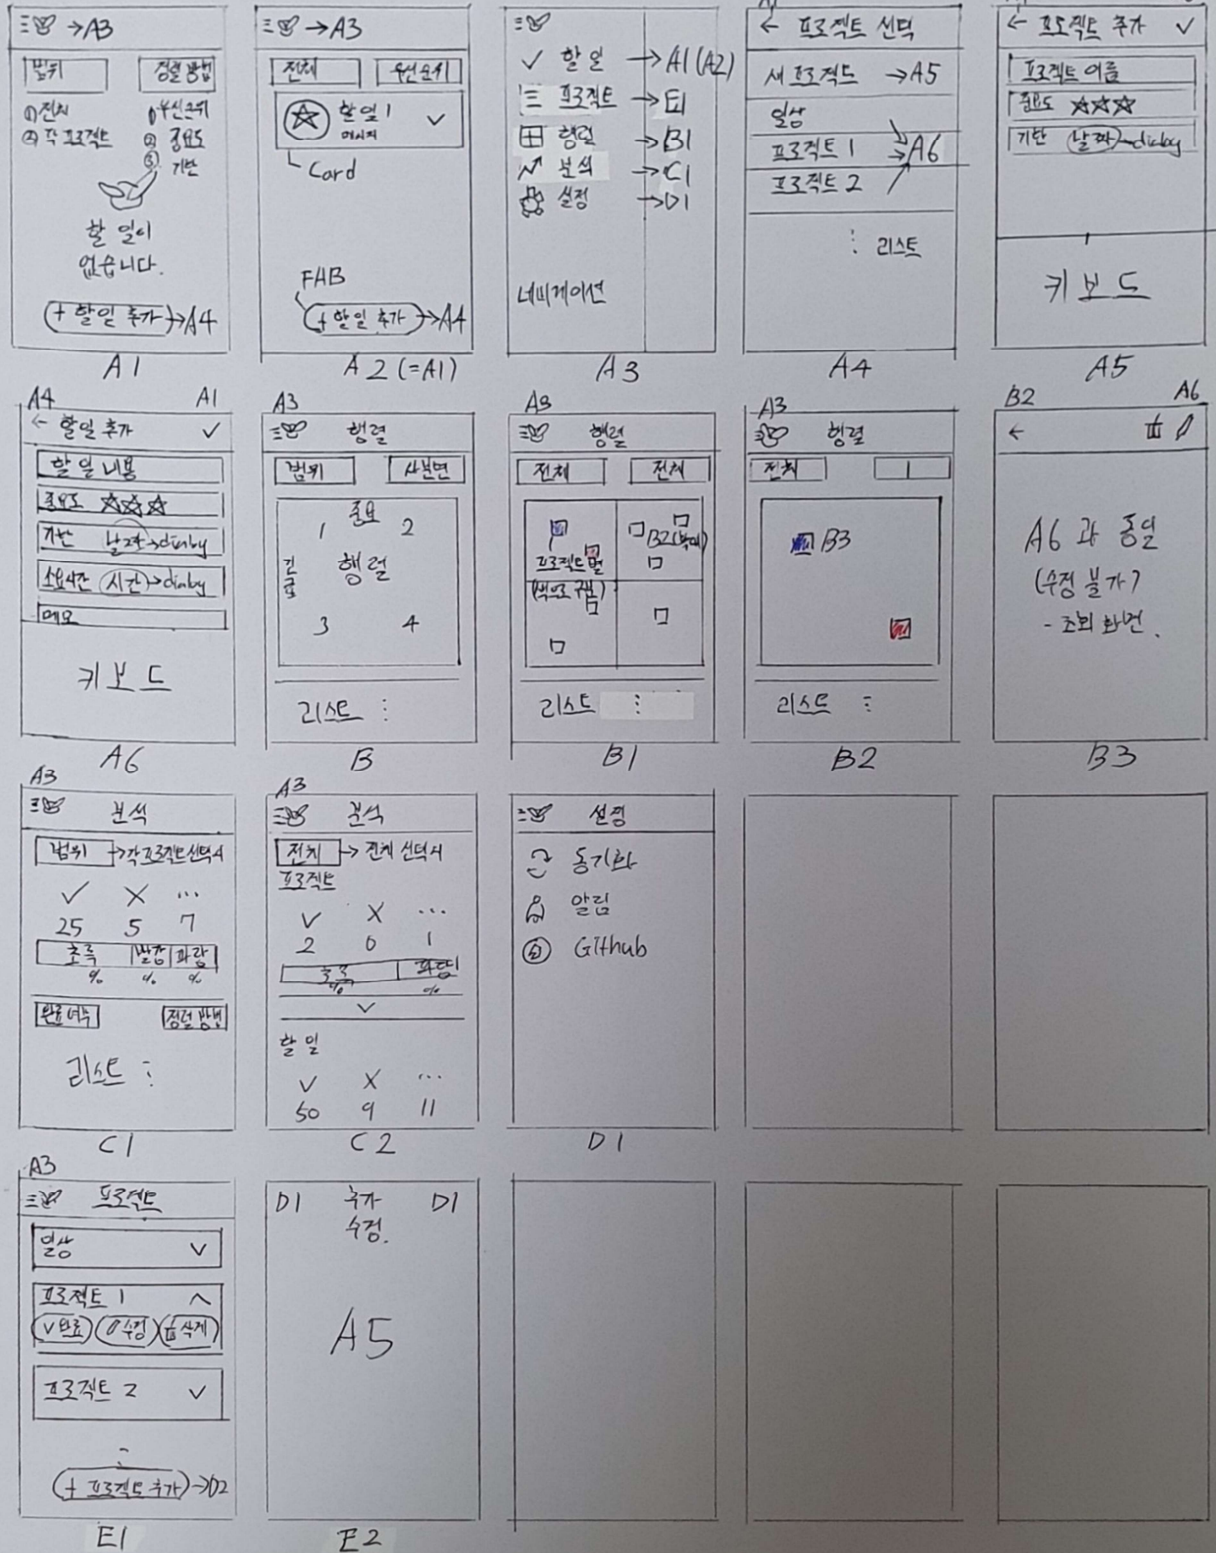 →A3
범위 정렬 방법
①전체 ①우선순위
②각 프로젝트 ② 중요도
③ 기한
할 일이
없습니다.
+ 할일 추가 →A4
A1
→A3
전체 우선순위
할 일 1
메시지
Card
FAB
+ 할일 추가 →A4
A2 (=A1)
할 일 →A1(A2)
프로젝트 →E1
행렬 →B1
분석 →C1
설정 →D1
네비게이션
A3
← 프로젝트 선택
새 프로젝트 →A5
일상
프로젝트 1 →A6
프로젝트 2
⋮ 리스트
A4
← 프로젝트 추가 ✓
프로젝트 이름
중요도 ☆☆☆
기한 날짜→dialog
키보드
A5
A4 A1
← 할일 추가 ✓
할 일 내용
중요도 ☆☆☆
기한 날짜→dialog
소요시간 시간→dialog
메모
키보드
A6
A3
행렬
범위 사분면
중요
1 2
긴급 행렬
3 4
리스트 ⋮
B
A3
행렬
전체 전체
프로젝트별
(색으로 구분)
리스트 ⋮
B1
A3
행렬
전체 1
B3
리스트 ⋮
B2
B2 A6
←
A6 과 동일
(수정 불가)
- 조회 화면.
B3
A3
분석
범위 →각 프로젝트 선택시
✓ X ...
25 5 7
초록 빨강 파랑
% % %
완료여부 정렬 방법
리스트 ⋮
C1
A3
분석
전체 → 전체 선택시
프로젝트
✓ X ...
2 0 1
초록 파랑
% %
할 일
✓ X ...
50 9 11
C2
설정
동기화
알림
Github
D1
A3
프로젝트
일상
프로젝트 1
✓완료 수정 삭제
프로젝트 2
+ 프로젝트 추가 →D2
E1
D1 추가 D1
수정.
A5
E2